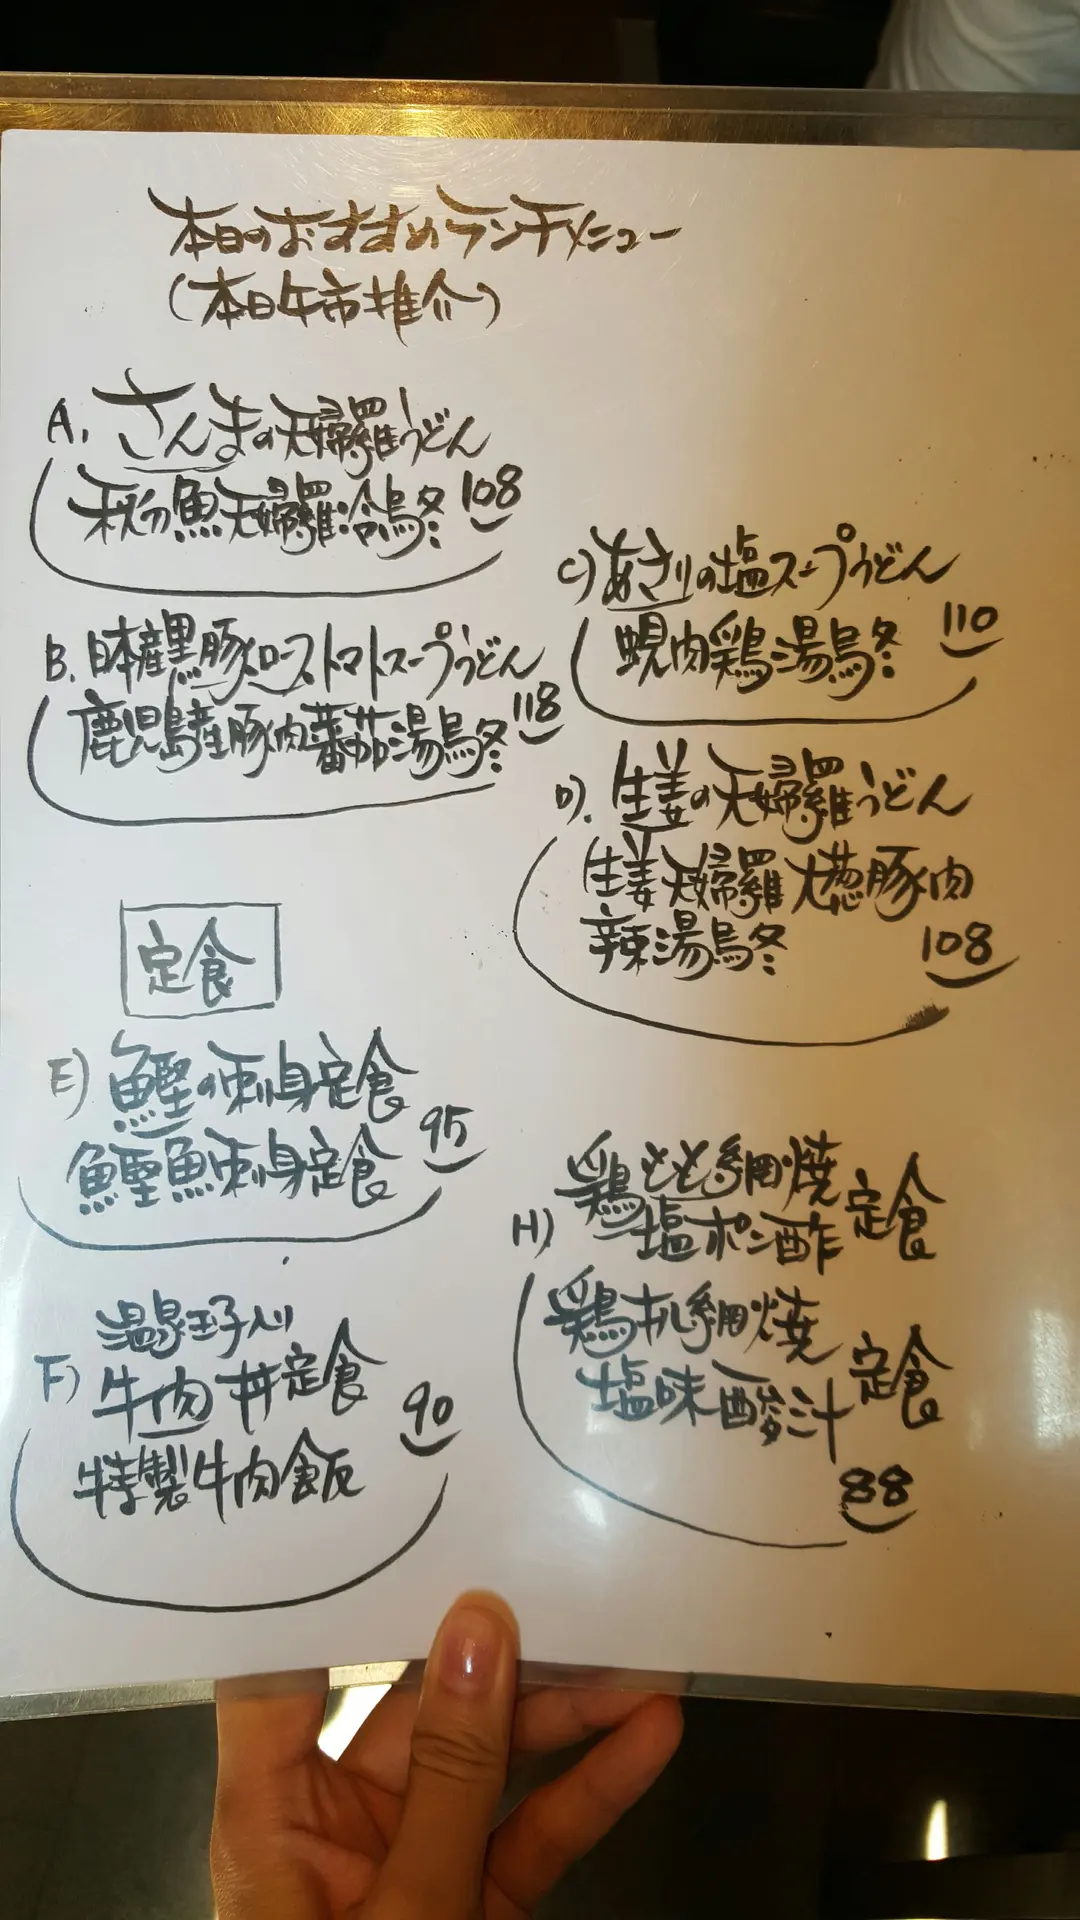 本日のおすすめランチメニュー
(本日午市推介)
A. さんまの天婦羅うどん
秋刀魚天婦羅冷烏冬 108
B. 日本産黒豚ローストマトスープうどん
鹿児島産豚肉蕃茄湯烏冬 118
C) あさりの塩スープうどん
蜆肉鶏湯烏冬 110
D). 生姜の天婦羅うどん
生姜天婦羅大葱豚肉
辣湯烏冬 108
定食
E) 鰹の刺身定食
鰹魚刺身定食 95
温泉玉子入り
F) 牛肉丼定食
特製牛肉飯 90
H) 鶏もも網焼
塩ポン酢 定食
鶏扒網焼
塩味酸汁 定食
88